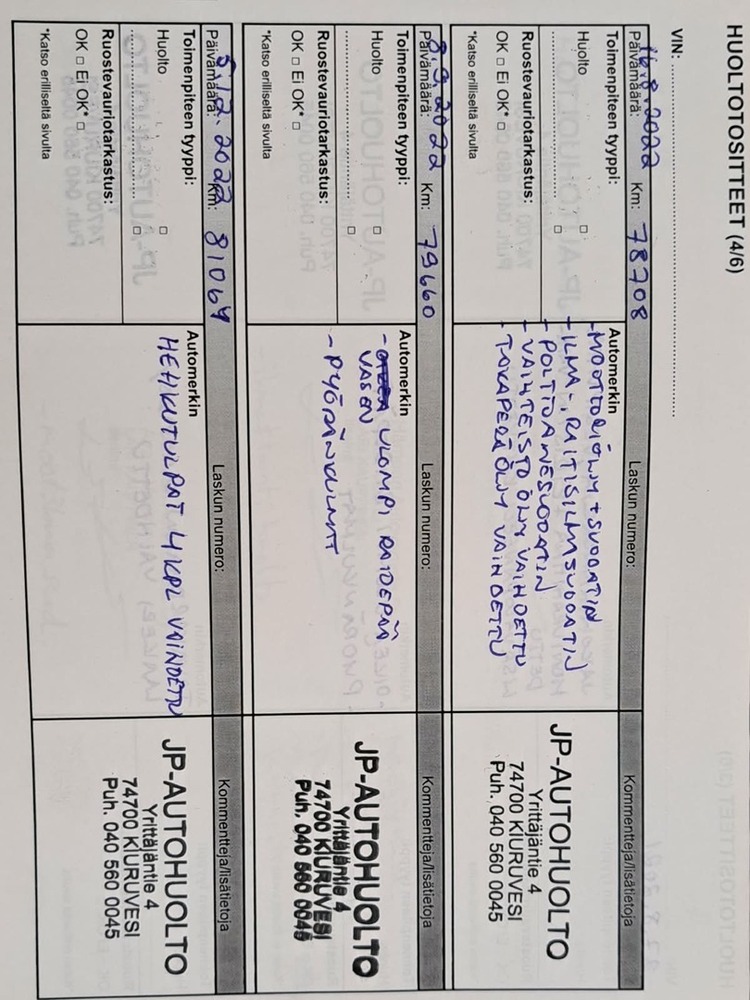 HUOLTOTOSITTEET (4/6)
VIN:
Päivämäärä: 16.8.2022 Km: 78708 Laskun numero: Kommentteja/lisätietoja
Toimenpiteen tyyppi:
Huolto □
□
Ruostevauriotarkastus:
OK □ Ei OK* □
*Katso erilliseltä sivulta
Automerkin
-MOOTTORIÖLJY + SUODATIN
-ILMA-, RAITISILMASUODATIN
-POLTTOAINESUODATIN
-VAIHTEISTO ÖLJY VAIHDETTU
-TAKAPERÄ ÖLJY VAIHDETTU
JP-AUTOHUOLTO
Yrittäjäntie 4
74700 KIURUVESI
Puh. 040 560 0045
Päivämäärä: 8.9.2022 Km: 79660 Laskun numero: Kommentteja/lisätietoja
Toimenpiteen tyyppi:
Huolto □
□
Ruostevauriotarkastus:
OK □ Ei OK* □
*Katso erilliseltä sivulta
Automerkin
- ULOMPI RAIDEPÄÄ
VASEN
-PYÖRÄNKULMAT
JP-AUTOHUOLTO
Yrittäjäntie 4
74700 KIURUVESI
Puh. 040 560 0045
Päivämäärä: 5.12.2022 Km: 81064 Laskun numero: Kommentteja/lisätietoja
Toimenpiteen tyyppi:
Huolto □
□
Ruostevauriotarkastus:
OK □ Ei OK* □
*Katso erilliseltä sivulta
Automerkin
HEHKUTULPAT 4 KPL VAIHDETTU
JP-AUTOHUOLTO
Yrittäjäntie 4
74700 KIURUVESI
Puh. 040 560 0045